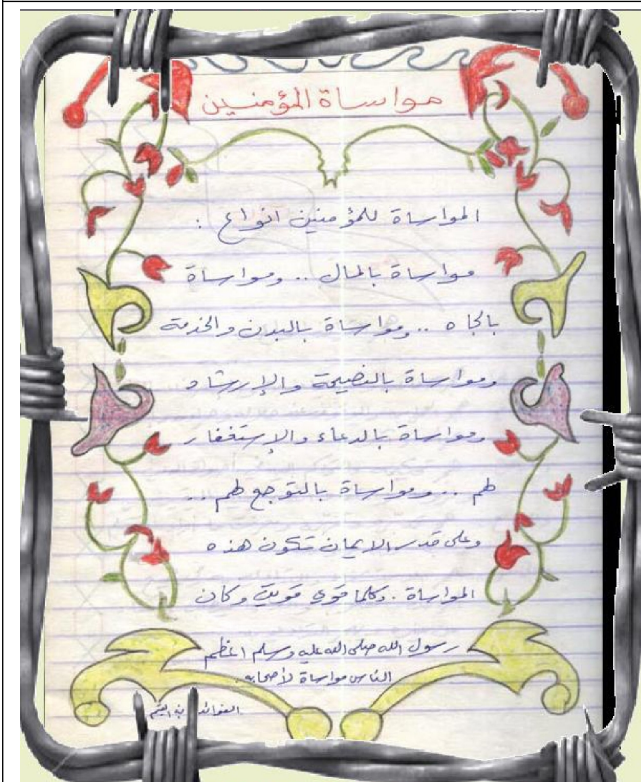 مواساة المؤمنين
المواساة للمؤمنين انواع :
مواساة بالمال .. ومواساة
بالجاه .. ومواساة بالبدن والخدمة
ومواساة بالنصيحة والإرشاد
ومواساة بالدعاء والإستغفار
لهم .. ومواساة بالتوجع لهم ..
وعلى قدر الايمان تكون هذه
المواساة . وكلما قوي قويت وكان
رسول الله صلى الله عليه وسلم اعظم
الناس مواساة لأصحابه
الفوائد ابن القيم